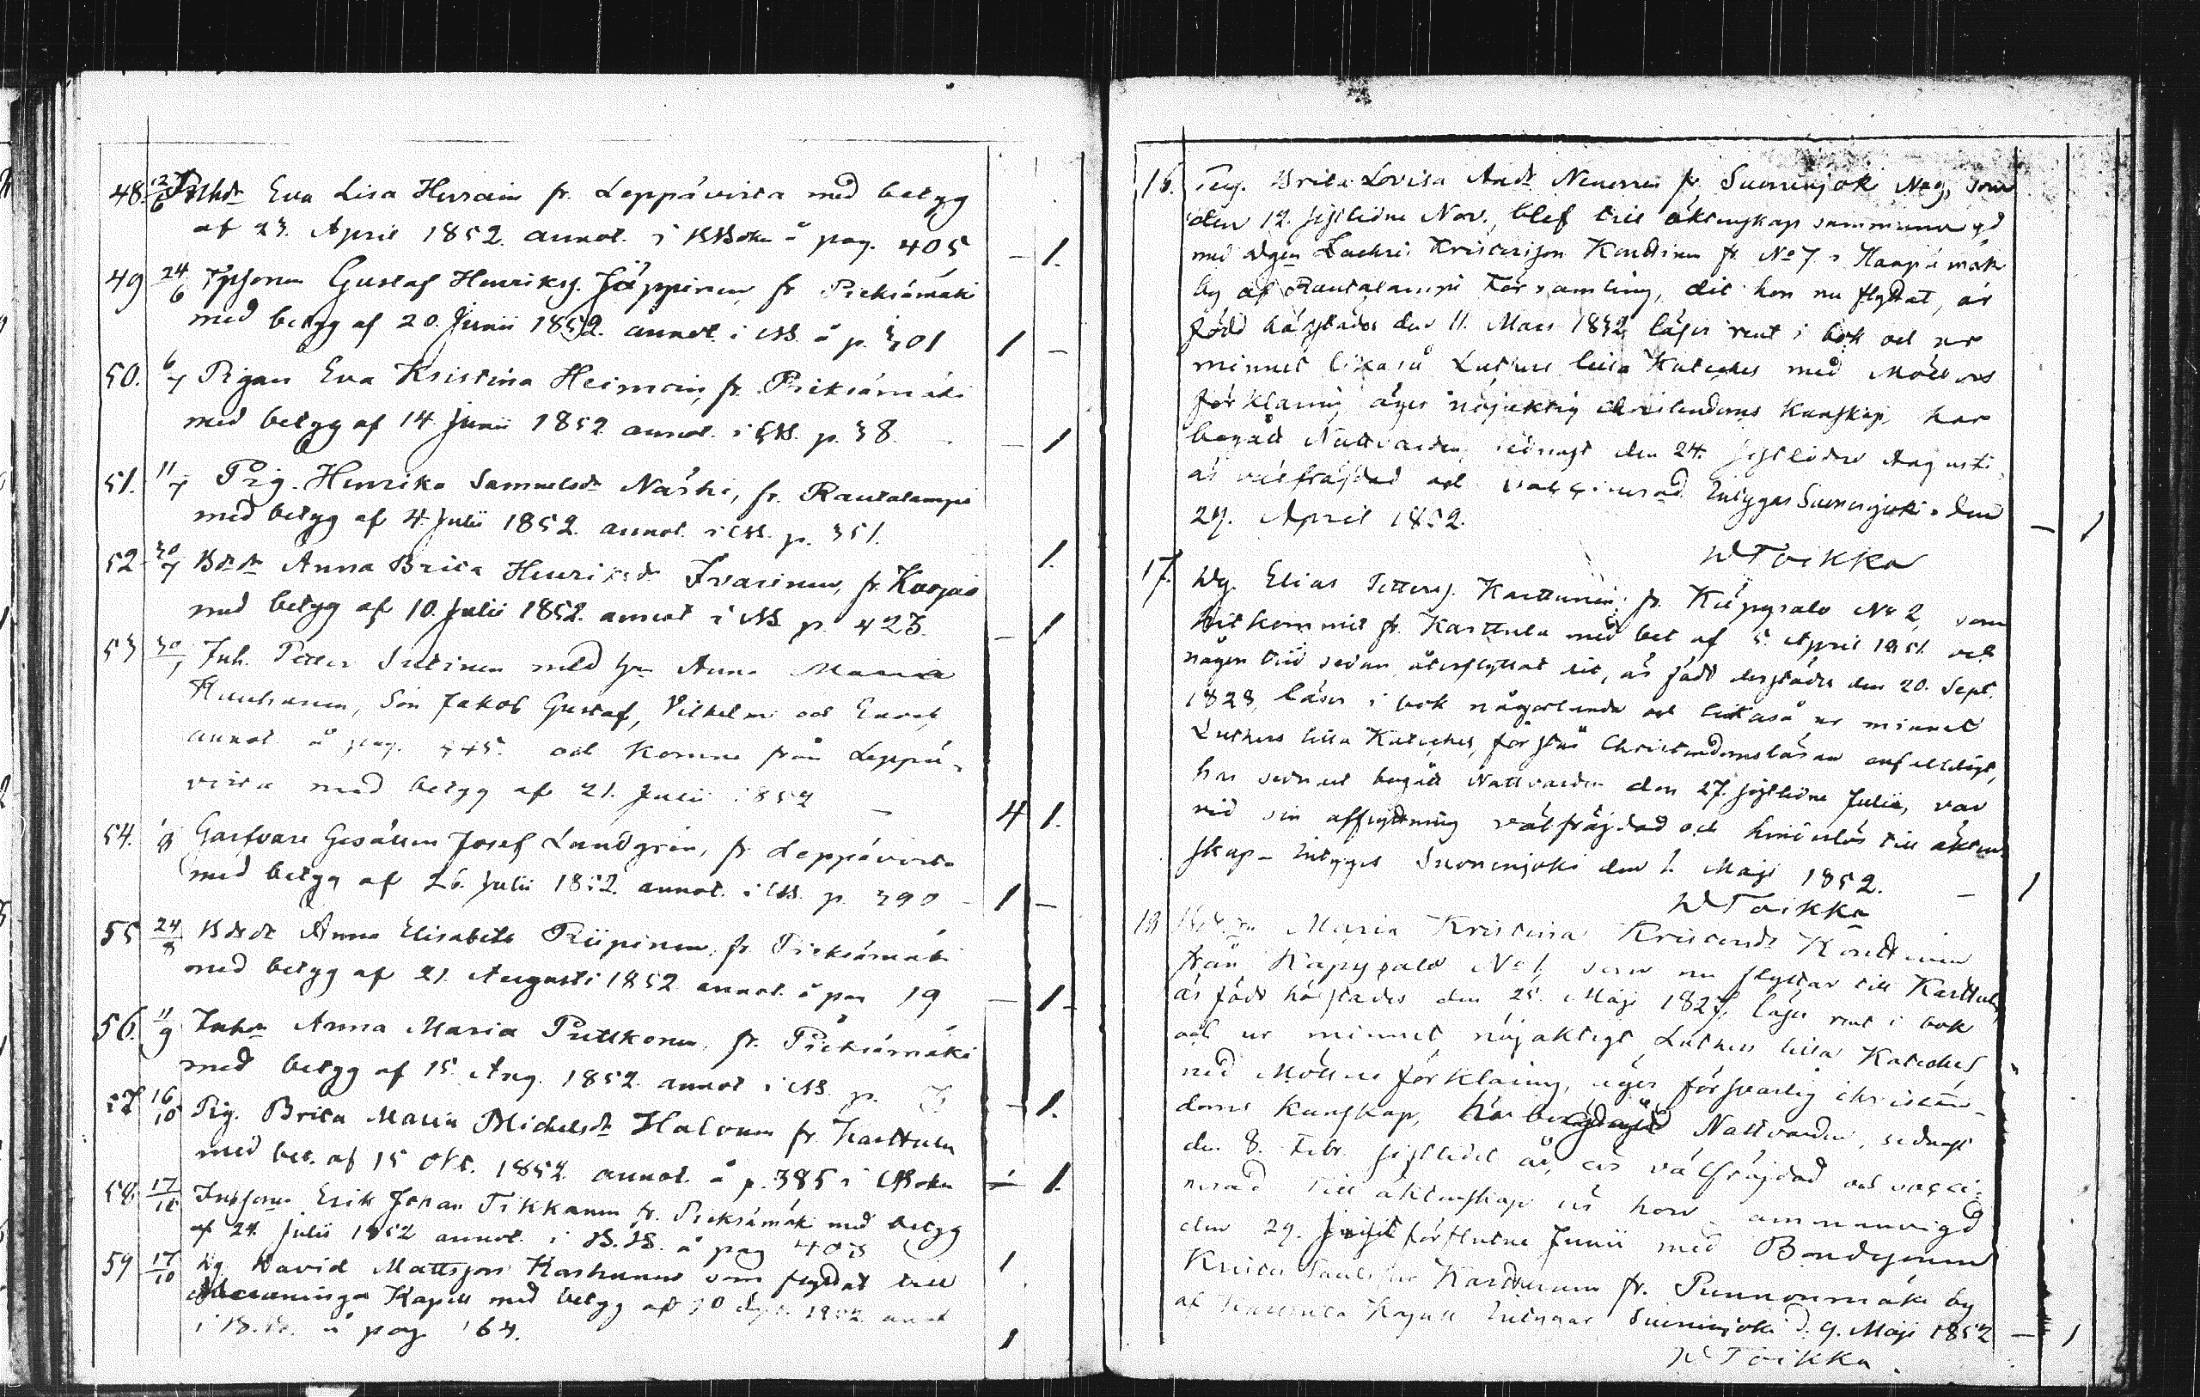 48. 12/6 Eva Lisa fr. Leppävirta med betyg
af 23. April 1852. annot. i KBoken å pag. 405 — 1.
49 24/6 Gustaf Henriksj. Jäppinen, fr. Pieksämäki
med betyg af 20. Junii 1852. annot. i KB. å p. 301 1 —
50. 6/7 Pigan Eva Kristina fr. Pieksämäki
med betyg af 14. Junii 1852. annot. i KB. p. 38. — 1
51. 11/7 Pig. Henrika Samuelsdr Närhi, fr. Rautalampi
med betyg af 4. Julii 1852. annot. i KB. p. 351. 1.
52 30/7 Anna Brita Henriksdr Ivarinen, fr.
med betyg af 10. Julii 1852. annot. i KB. p. 423. — 1
53 30/7 Inh. Petter Sutinen med hu Anna Maria
Son Jakob Gustaf, Vilhelm och
annot å pag. och komne från Leppä-
virta med betyg af 21. Julii 1852 — 4 1.
54. Garfvare Gesällen Josef Lundgrén, fr. Leppävirta
med betyg af 26. Julii 1852. annot. i KB. p. 390 — 1 —
55 Anna Elisabeth Riipinen, fr. Pieksämäki
med betyg af 21. Augusti 1852 annot. å pag 19 — 1
56. 11/9 Anna Maria Puttkonen, fr. Pieksämäki
med betyg af 15. Aug. 1852. annot i KB. p. — 1.
57 16/10 Pig. Brita Maria Michelsdr Halonen fr. Karttula
med bet. af 15 Okt. 1852. annot. å p. 385 i KBoken — 1.
58. 17/10 Erik Johan Tikkanen fr. Pieksämäki med betyg
af 24. Julii 1852 annot. i K.B. å pag 403 1
59 17/10 Dg David Mattsson som flyttat till
Kapell med betyg af 1852. annot
i K.B. å pag 1
16. Pig. Brita Lovisa Andr. fr. Suonenjoki som
den 12. sistlidne Nov. blef till äktenskap sammanvigd
med Kristersson fr. No 7 i
by af Rautalampi Församling, dit hon nu flyttat, är
född härstädes den 11. Mars 1832, läser rent i bok och ur
minnet likaså Luthers lilla Kateches med Möllers
förklaring, äger nöjaktig christendoms kunskap, har
begått Nattvarden sednast den 24. sistlidne Augusti,
är välfräjdad och vaccinerad. Intygas Suonenjoki den
29. April 1852. — 1
W Toikka
17. Dg. Elias Petterss. Karttunen, fr. Käpysalo No 2, som
hit kommit fr. Karttula med bet af 5. April 1851. och
någon tid sedan återflyttat dit, är född derstädes den 20. Sept.
1828, läser i bok någorlunda och likaså ur minnet
Luthers lilla Kateches, förstår Christendomsläran enfaldigt,
har sednast begått Nattvarden den 27. sistlidne Julii, var
vid sin afflyttning välfräjdad och hinderlös till äkten-
skap. Intygas Suonenjoki den 1. Maji 1852. — 1
W Toikka
18 Maria Kristina Kristersdr
från Käpysalo No 1, som nu flyttar till Karttula
är född härstädes den 25. Maji läser rent i bok
och ur minnet nöjaktigt Luthers lilla Kateches
med Möllers förklaring, äger försvarlig christen-
doms kunskap, har begått Nattvarden, sednast
den 8. Febr. sistlidet år, är välfräjdad och vacci-
nerad. Till äktenskap är hon sammanvigd
den 29. förflutne Junii med Bondesonen
Krister Karttunen fr. Punnonmäki by
af Karttula Kapell. Intygas Suonenjoki d. 9. Maji 1852 — 1
W Toikka.